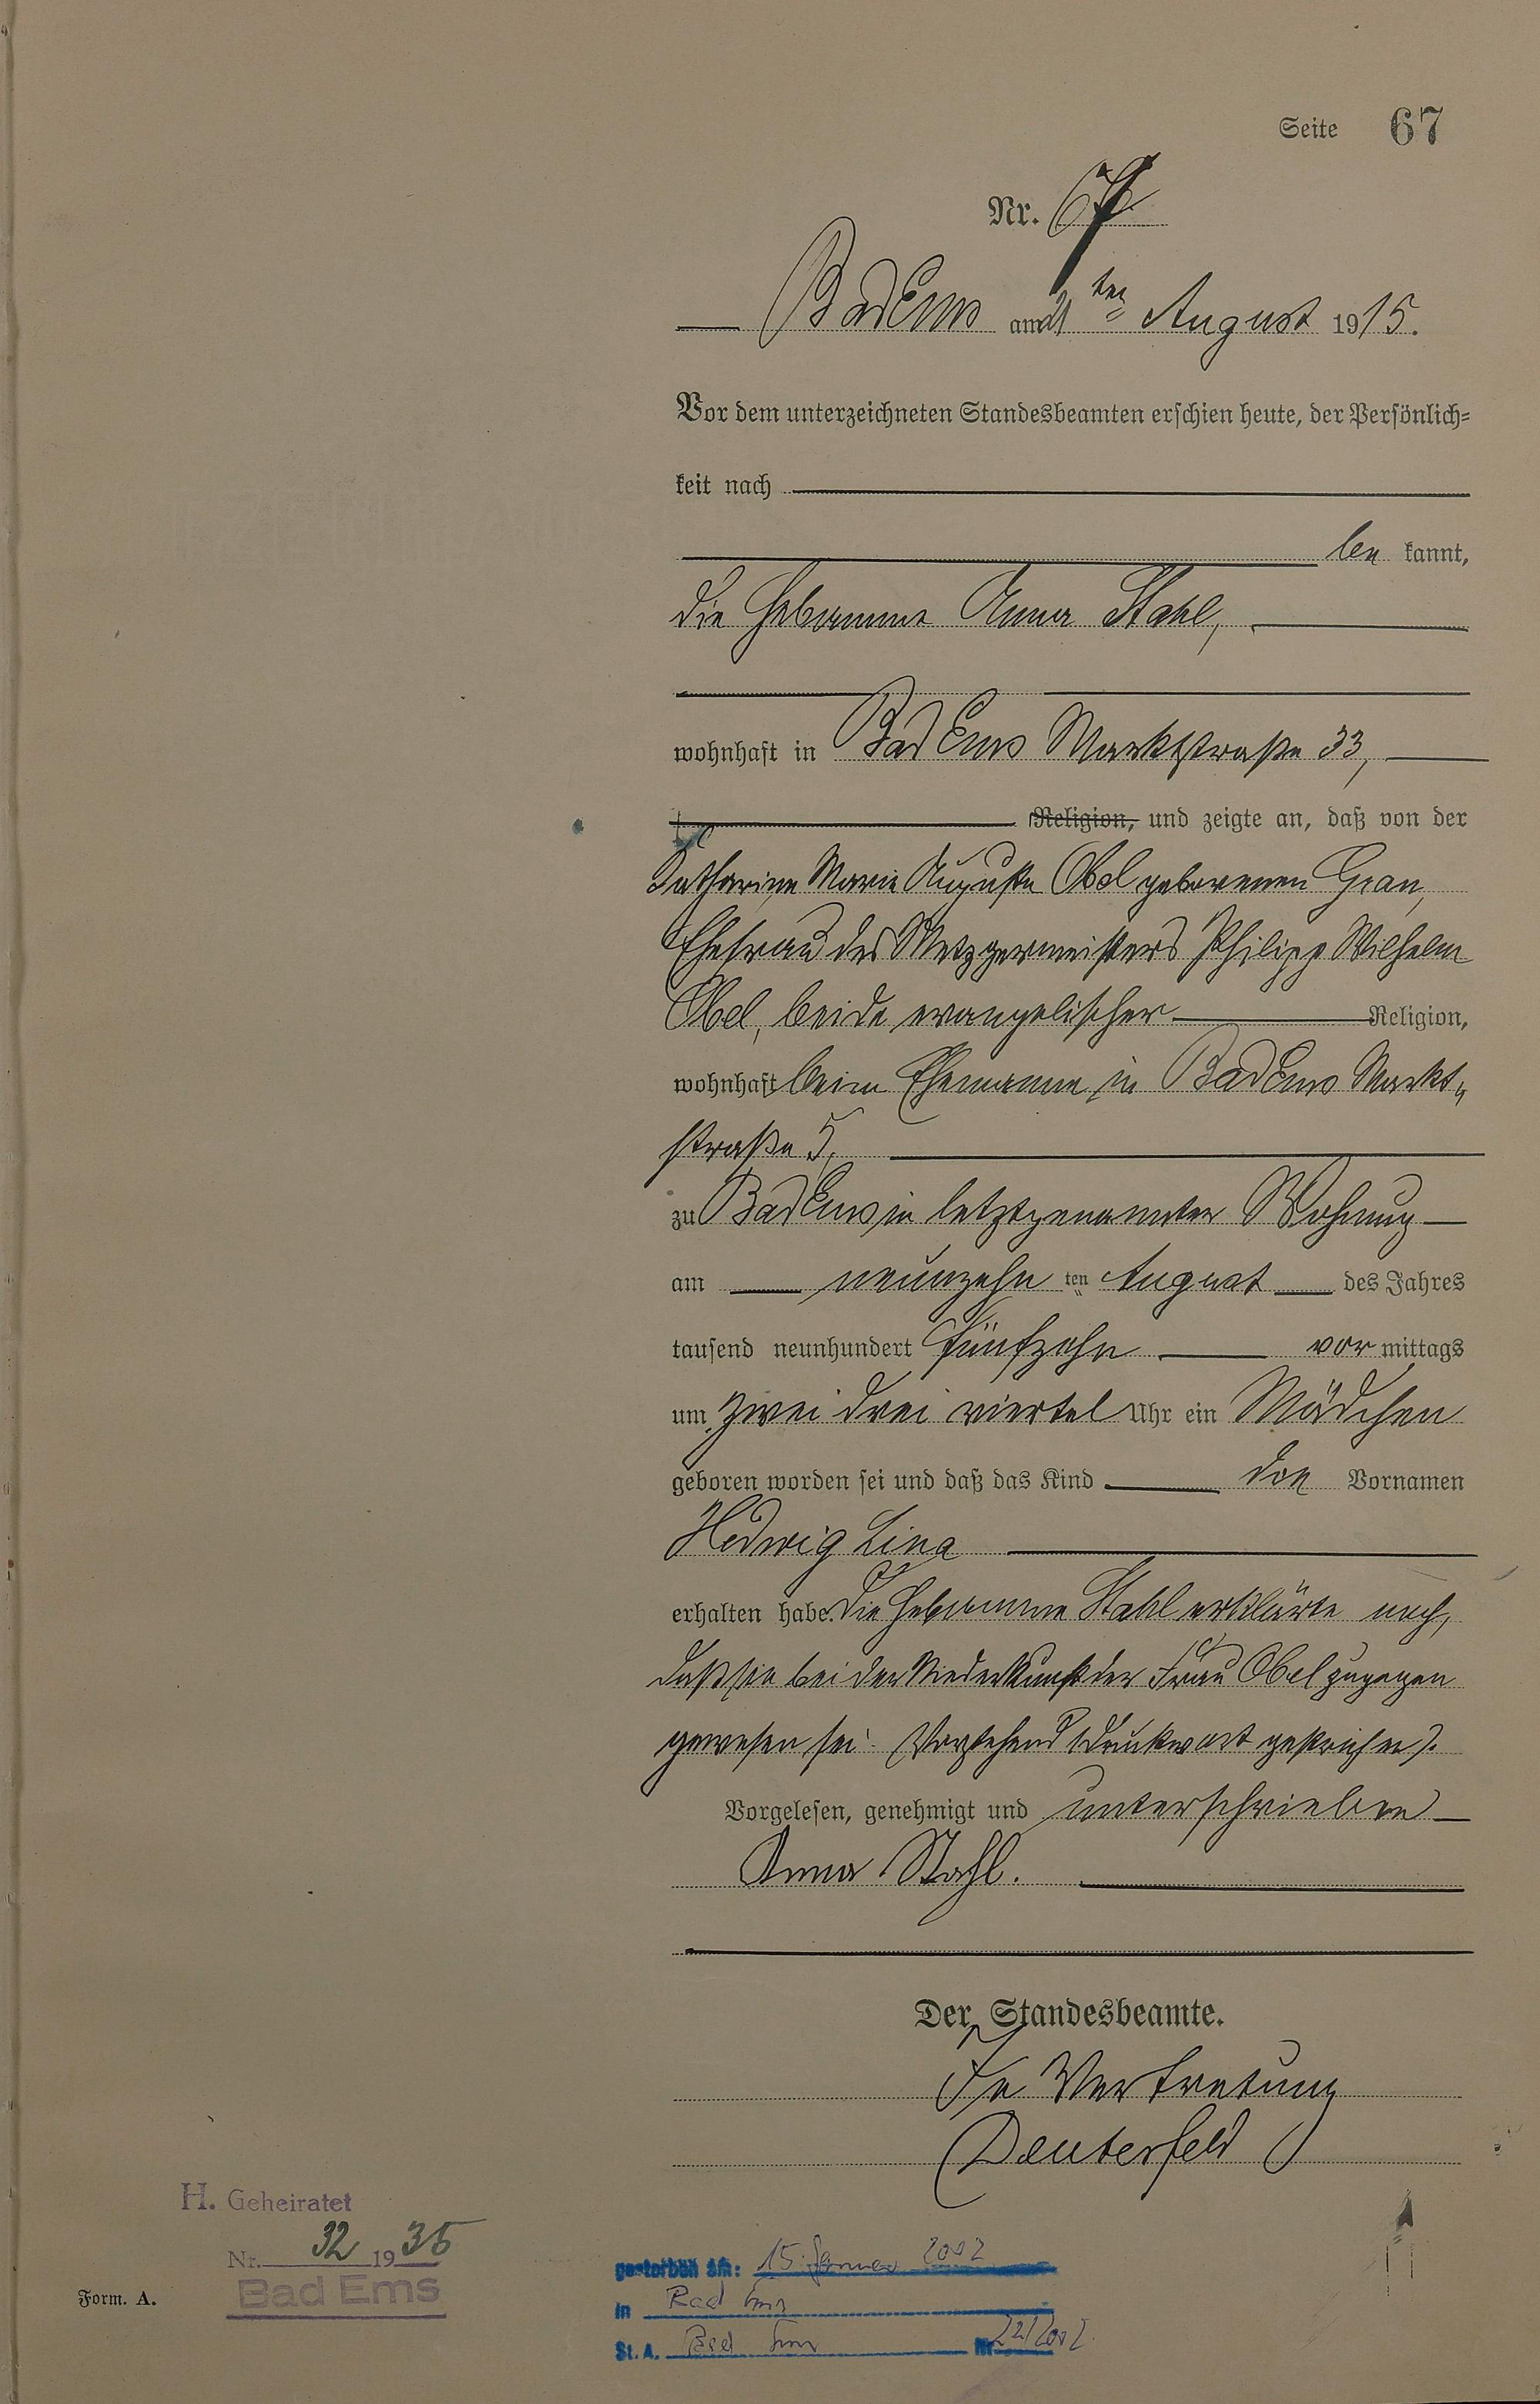 Seite 67
Nr. 67
Bad Ems am 21ten August 1915.
Vor dem unterzeichneten Standesbeamten erschien heute, der Persönlich-
keit nach
be kannt,
die Hebamme Anna Stahl,
wohnhaft in Bad Ems Marktstraße 33,
Religion, und zeigte an, daß von der
Katharina Marie Auguste Obel geborenen
Ehefrau des Metzgermeisters Philipp Wilhelm
Obel, beide evangelischer Religion,
wohnhaft beim Ehemanne in Bad Ems Markt-
straße 5,
zu Bad Ems in letztgenannter Wohnung
am neunzehn ten August des Jahres
tausend neunhundert fünfzehn vor mittags
um zwei drei viertel Uhr ein Mädchen
geboren worden sei und daß das Kind die Vornamen
Hedwig Lina
erhalten habe. Die Hebamme Stahl erklärte noch,
daß sie bei der Niederkunft der Frau Obel zugegen
gewesen sei. (Vorstehend 1 Druckwort gestrichen).
Vorgelesen, genehmigt und unterschrieben
Anna Stahl.
Der Standesbeamte.
In Vertretung
Deuterfeld
H. Geheiratet
Nr. 32 1935
Bad Ems
Form. A.
gestorben am: 15. Januar 2002
in Bad Ems
St. A. Bad Ems Nr. 22/2002